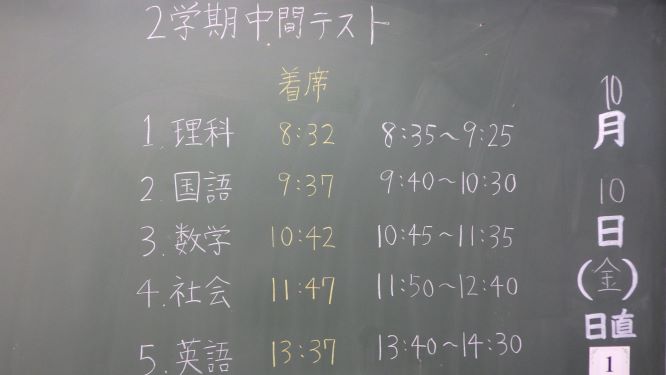 2学期中間テスト
着席
1. 理科 8:32 8:35～9:25
2. 国語 9:37 9:40～10:30
3. 数学 10:42 10:45～11:35
4. 社会 11:47 11:50～12:40
5. 英語 13:37 13:40～14:30
10
月
10
日
(金)
日直
1